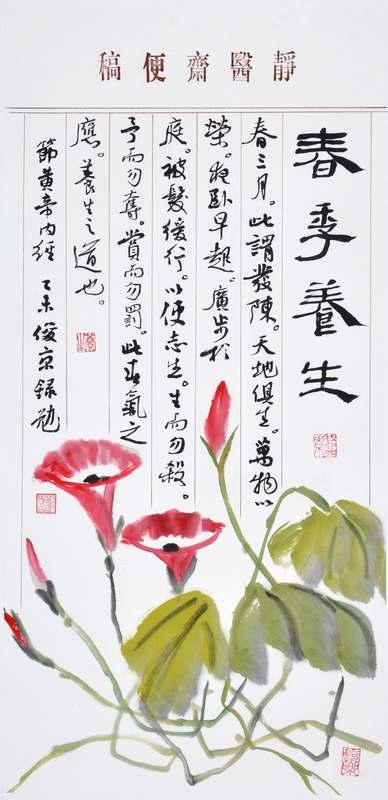 靜醫齋便稿
春季養生
春三月。此謂發陳。天地俱生。萬物以
榮。夜卧早起。廣步於
庭。被髮緩行。以使志生。生而勿殺。
予而勿奪。賞而勿罰。此春氣之
應。養生之道也。
節黃帝內經 乙未俊京録勉